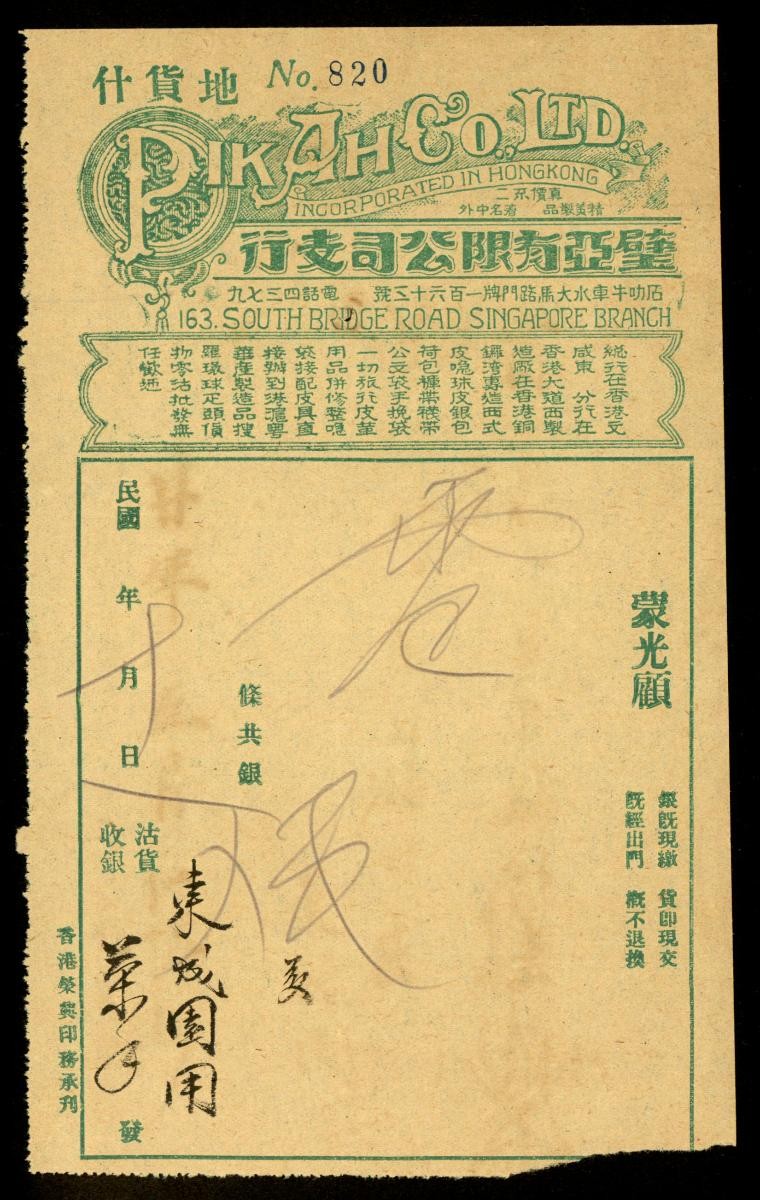 地貨什
No. 820
PIK AH CO., LTD.
INCORPORATED IN HONGKONG
真價不二
精美製品 著名中外
璧亞有限公司支行
石叻牛車水大馬路門牌一百六十三號 電話四三七九
163. SOUTH BRIDGE ROAD SINGAPORE BRANCH
總行在香港文
咸東 分行在
香港大道西製
造廠在香港銅
鑼湾專造西式
皮喼珠皮銀包
荷包褲帶襪帶
公文袋手挽袋
一切旅行皮革
用品併修整喼
袋接配皮具直
接辦到港滬粤
華產製造品搜
羅環球疋頭傎
物零沽批發無
任歡迎
蒙光顧
銀既現繳 貨即現交
既經出門 概不退換
條共銀
民國 年 月 日
沽貨
收銀
發
東成園用
香港榮興印務承刊